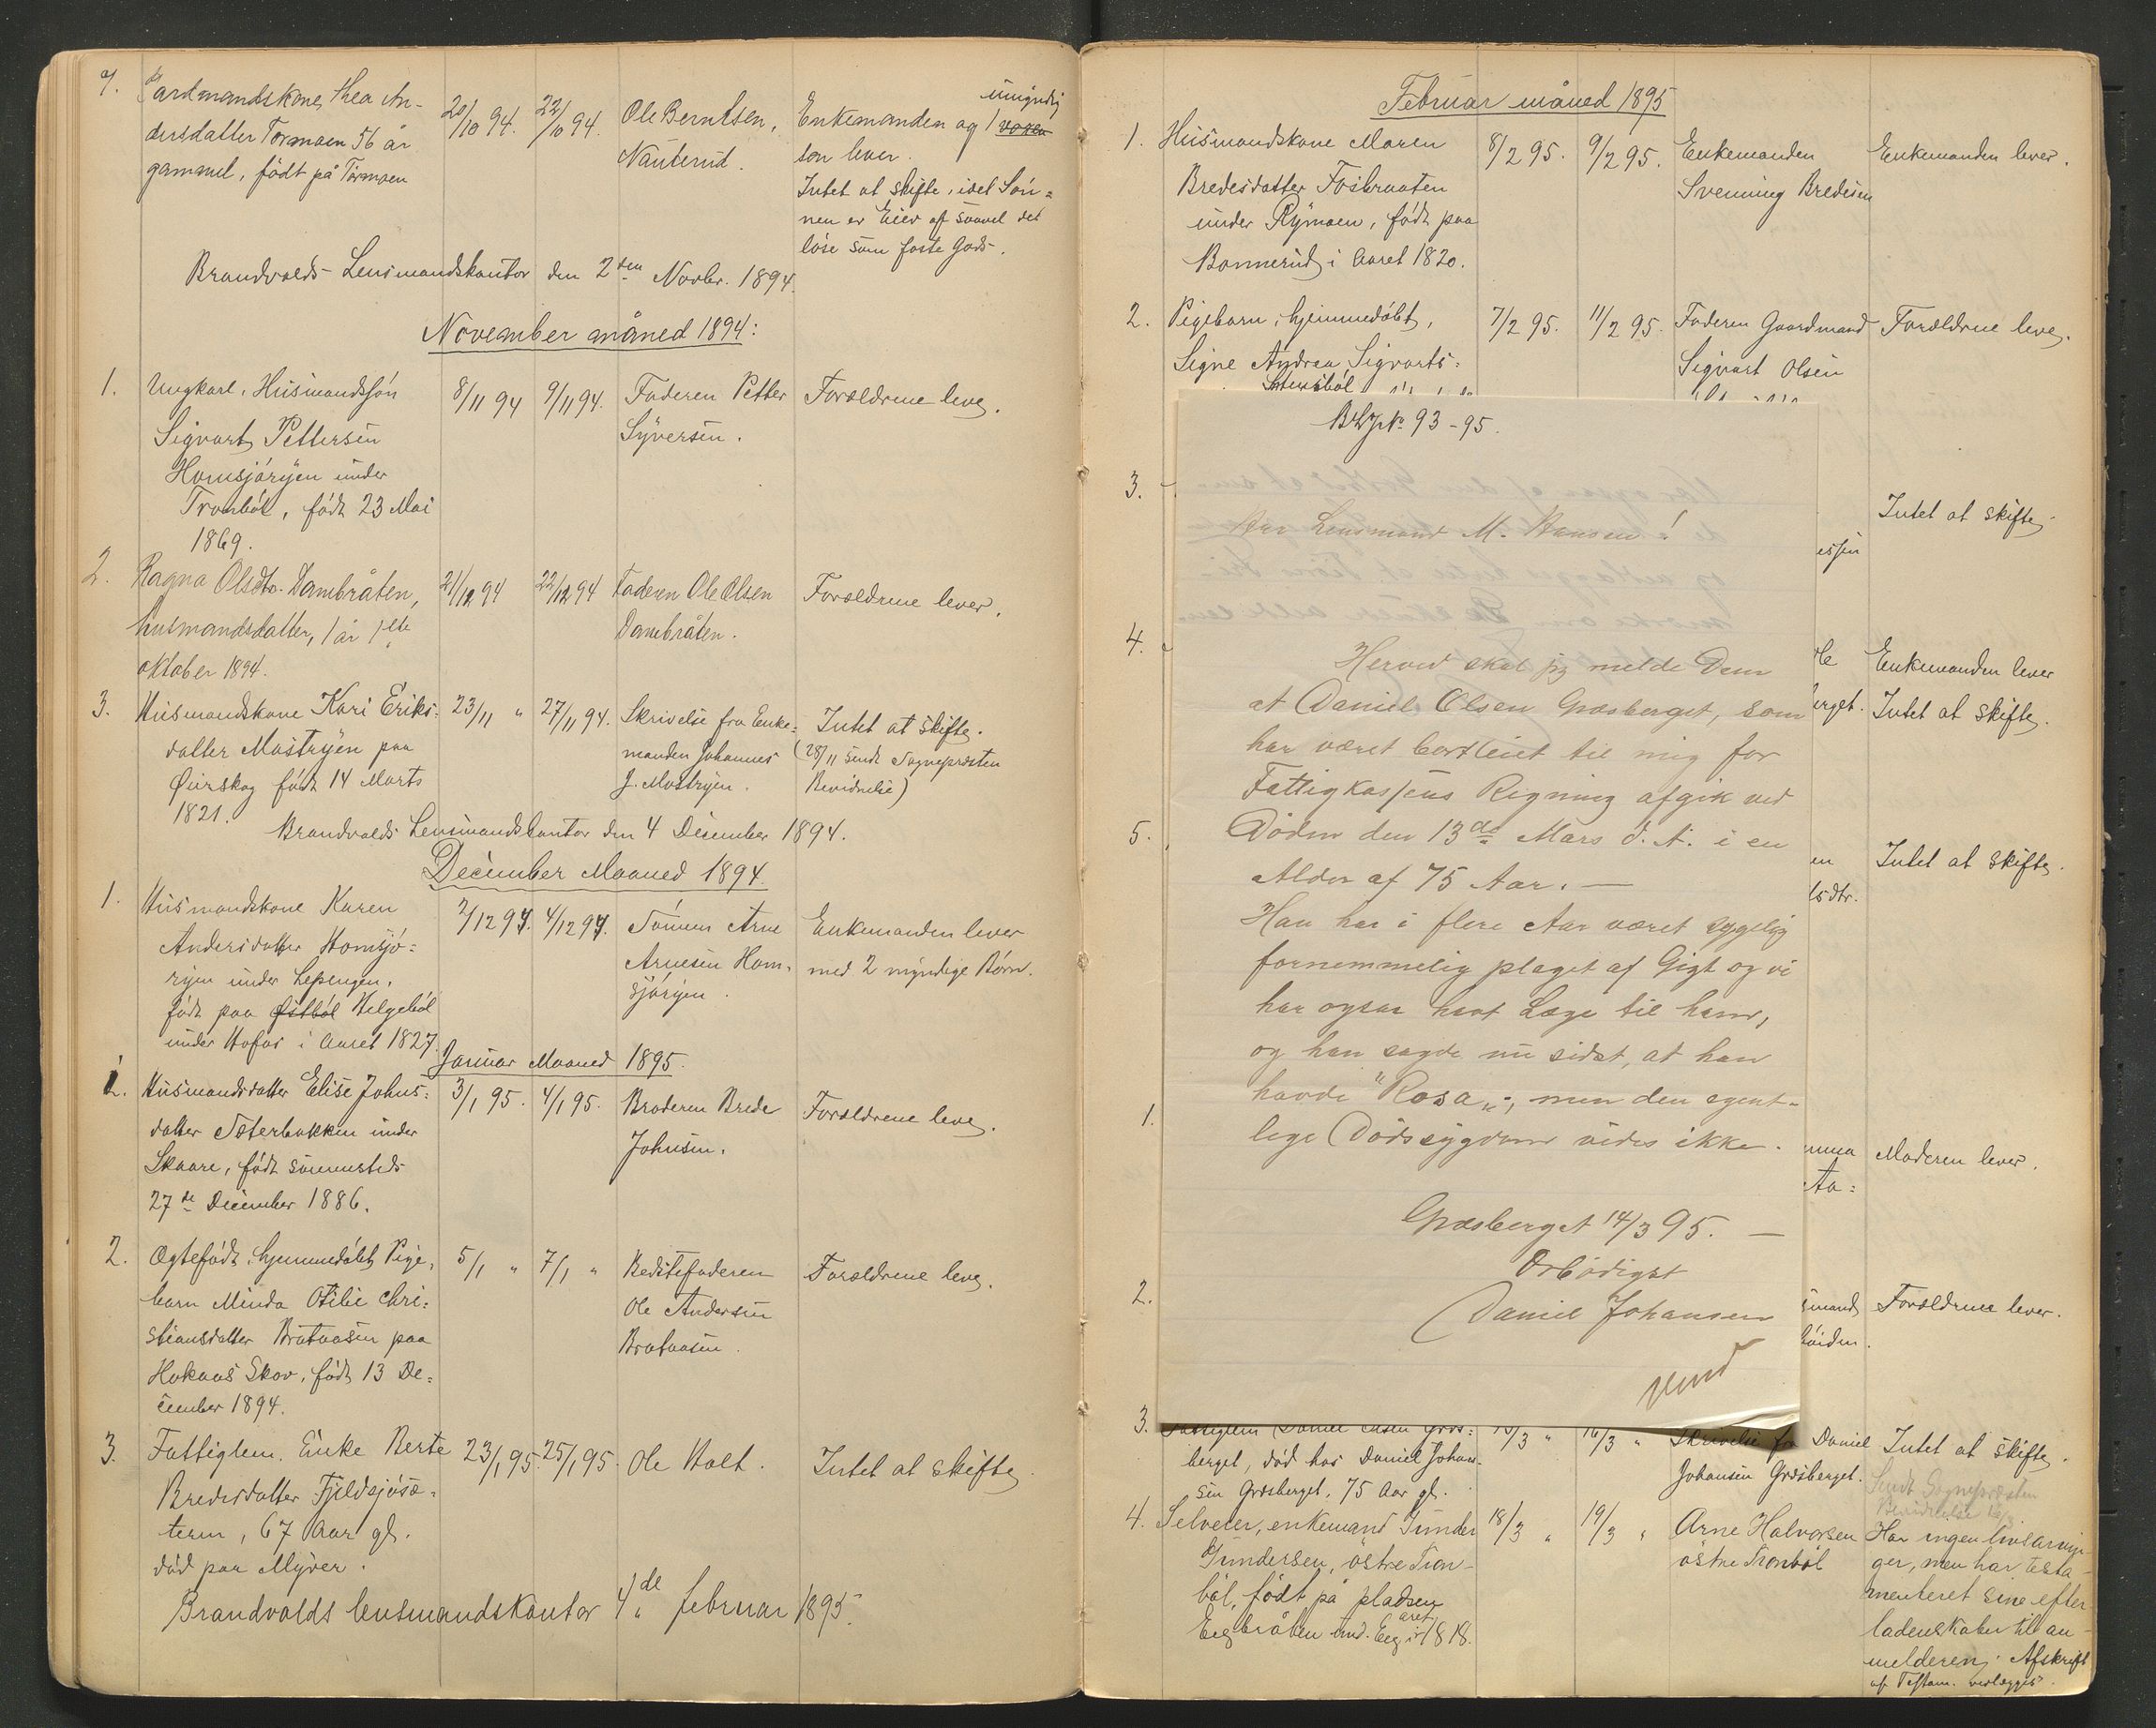 7. Gardmandskone, Thea An-
dersdatter Tormoen 56 år
gammel, født på Tormoen
20/10 94. 22/10 94.
Ole Berntsen,
Nauterud.
umyndig
Enkemanden og 1 voxen
søn lever.
Intet at skifte, idet Søn=
nen er Eier af saavel det
løse som faste Gods.
Brandvolds Lensmandskontor den 2den Novbr. 1894.
November måned 1894:
1. Ungkarl, Husmandssøn
Sigvart Pettersen
Homsjøryen under
Tronbøl, født 23 Mai
1869.
8/11 94 9/11 94.
Faderen Petter
Syversen.
Forældrene leve.
2. Ragna Olsdtr. Dambråten,
husmandsdatter, 1 år 1ste
oktober 1894.
21/12 94 22/12 94
Faderen Ole Olsen
Dambråten.
Forældrene lever.
3. Husmandskone Kari Eriks=
datter Mostryen paa
Øierskog født 14 Marts
1821.
23/11 " 27/11 94.
Skrivelse fra Enke=
manden Johannes
J. Mostryen.
Intet at skifte.
(28/11 sendt Sognepræsten
Bevidnelse)
Brandvolds Lensmandskontor den 4 December 1894.
December Maaned 1894.
1. Husmandskone Karen
Andersdatter Homsjø=
ryen under Lepengen,
født paa Østbøl Helgebøl
under Hofos i Aaret 1827.
2/12 94. 4/12 94.
Sønnen Arne
Arnesen Hom-
sjøryen.
Enkemanden lever
med 2 myndige Børn.
Januar Maaned 1895.
1. Husmandsdatter Elise Johns=
datter Sæterbakken under
Skaare, født sammesteds
27de December 1886.
3/1 95. 4/1 95.
Broderen Brede
Johnsen.
Forældrene leve.
2. Ægtefødt, hjemmedøbt Pige-
barn Minda Otilie Chri=
stiansdatter Brataasen paa
Hokaas Skov, født 13 De=
cember 1894.
5/1 " 7/1 "
Bedstefaderen
Ole Andersen
Brataasen.
Forældrene leve.
3. Fattiglem, Enke Berte
Bredesdatter Fjeldsjøsæ-
teren, 67 Aar gl.
død paa Myrer.
23/1 95. 25/1 95.
Ole Holt.
Intet at skifte
Brandvolds lensmandskontor 4de februar 1895.
Februar måned 1895
1. Husmandskone Maren
Bredesdatter Fosbraaten
under Rymoen, født paa
Bonnerud i Aaret 1820.
8/2 95. 9/2 95.
Enkemanden
Svenning Bredesen
Enkemanden lever.
2. Pigebarn, hjemmedøbt,
Signe Andrea Sigvarts=
7/2 95. 11/2 95.
Faderen Gaardmand
Sigvart Olsen
Forældrene leve.
3.
essen
Intet at skifte
4.
Ole
erget.
Enkemanden lever
Intet at skifte.
5.
en
lsdtr.
Intet at skifte.
1.
Moderen lever.
2.
smand
Forældrene lever.
No 93-95.
Hr. Lensmand M. Hansen!
Herved skal jeg melde Dem
at Daniel Olsen Græsberget, som
har været bortleiet til mig for
Fattigkassens Regning afgik ved
Døden den 13de Mars d. A. i en
Alder af 75 Aar. —
Han har i flere Aar været sygelig
fornemmelig plaget af Gigt og vi
har ogsaa havt Læge til ham,
og han sagde nu sidst, at han
havde "Rosa", men den egent-
lige Dødssygdom vides ikke.
Græsberget 14/3 95. —
Ærbødigst
Daniel Johansen
Vend
3. Fattiglem Daniel Olsen Græs=
berget, død hos Daniel Johan-
sen Græsberget, 75 Aar gl.
13/3 " 16/3 "
Skrivelse fra Daniel
Johansen Græsberget.
Intet at skifte.
Sendt Sognepræsten
Bevidnelse
4. Selveier, enkemand Gunder
Gundersen, østre Tron-
bøl, født på pladsen
Eegbråten und. Eeg i året 1818.
18/3 " 19/3 "
Arne Halvorsen
østre Tronbøl
Har ingen livsarvin-
ger, men har testa-
menteret sine efter-
ladenskaber til an-
melderen. Afskrift
af Testam. vedlægges.